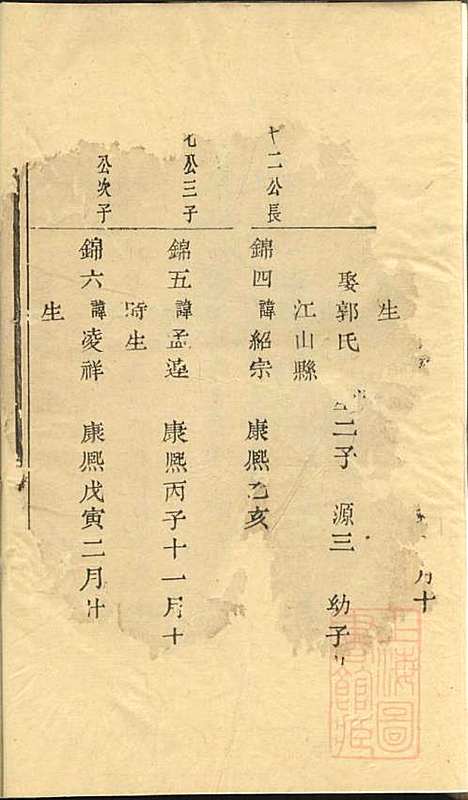 生 月十
娶郭氏 二子 源三 幼子
江山縣
十二公長 錦四諱紹宗 康熙乙亥
公三子 錦五諱孟蓮 康熙丙子十一月十
時生
公次子 錦六諱凌祥 康熙戊寅二月廿
生
上海圖書館藏